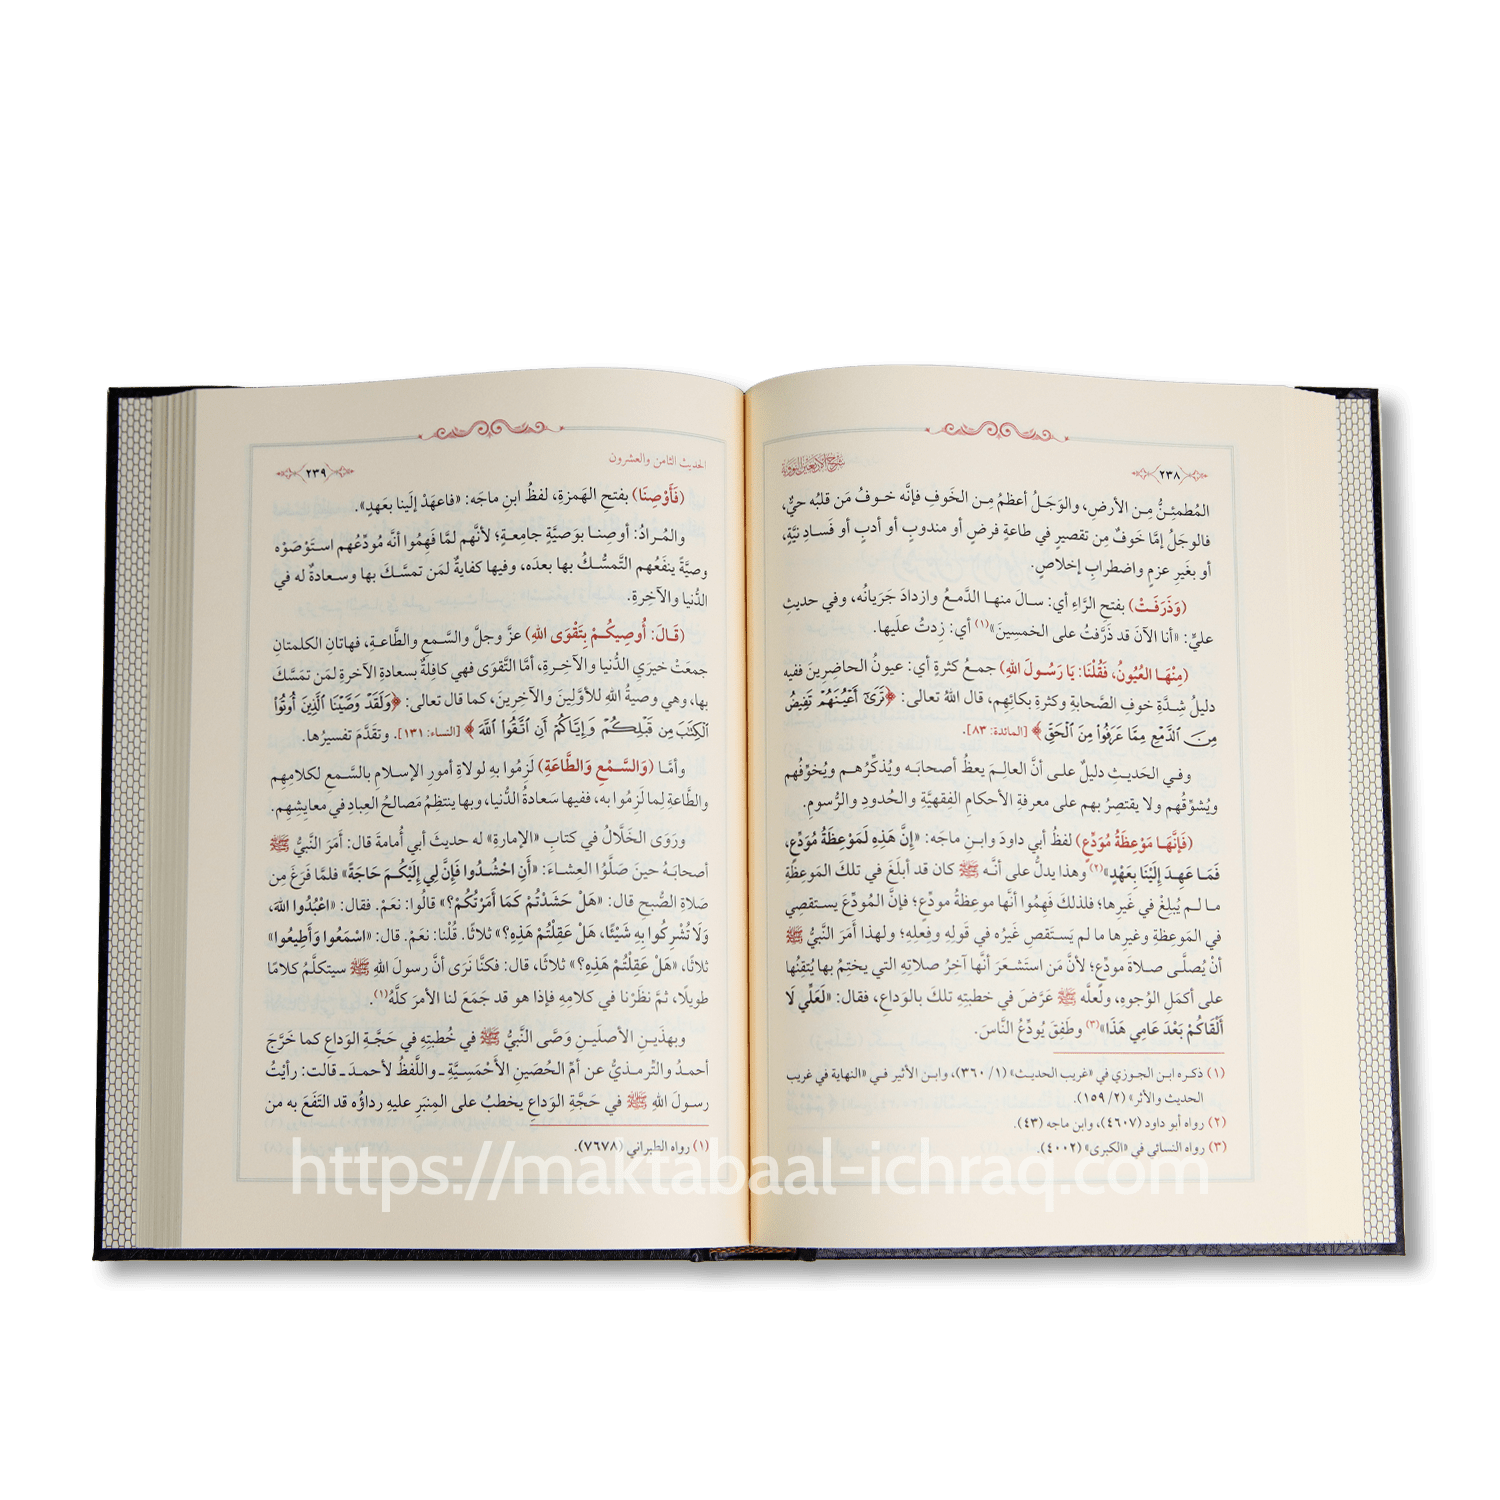 ٢٣٨
شرح الأربعين النووية
المُطمئِنُّ مِـن الأرضِ، والوَجَـلُ أعظمُ مِـن الخَوفِ فإنَّه خـوفُ مَن قلبُه حيٌّ،
فالوجَلُ إمَّا خَوفٌ مِن تقصيرٍ في طاعةِ فرضٍ أو مندوبٍ أو أدبٍ أو فَسادِ نيَّةٍ،
أو بغَيرِ عزمٍ واضطرابِ إخلاصٍ.
(وَذَرَفَتْ) بفتحِ الرَّاءِ أي: سـالَ منهـا الدَّمـعُ وازدادَ جَرَيَانُه، وفي حديثِ
عليٍّ: «أنا الآنَ قد ذَرَّفتُ على الخمسِينَ»(١) أي: زِدتُ علَيها.
(مِنْهَـا العُيُونُ، فَقُلْنَا: يَا رَسُـولَ اللهِ) جمـعُ كثرةٍ أي: عيونُ الحاضِرينَ ففيه
دليلُ شِـدَّةِ خوفِ الصَّحابةِ وكثرةِ بكائِهم، قال اللهُ تعالى: ﴿تَرَىٰٓ أَعۡيُنَهُمۡ تَفِيضُ
مِنَ ٱلدَّمۡعِ مِمَّا عَرَفُواْ مِنَ ٱلۡحَقِّ﴾ [المائدة: ٨٣].
وفـي الحَديثِ دليلٌ علـى أنَّ العالِـمَ يعظُ أصحابَـه ويُذكِّرُهـم ويُخوِّفُهم
ويُشوِّقُهم ولا يقتصِرُ بهم على معرفةِ الأحكامِ الفِقهيَّةِ والحُدودِ والرُّسومِ.
(فَإِنَّهَـا مَوْعِظَةُ مُوَدِّعٍ) لفظُ أبي داودَ وابنِ ماجَه: «إِنَّ هَذِهِ لَمَوْعِظَةُ مُوَدِّعٍ،
فَمَـا عَهِـدَ إِلَيْنَا بِعَهْدٍ»(٢) وهذا يدلُّ على أنَّـه ﷺ كان قد أبلَغَ في تلكَ المَوعِظةِ
ما لـم يُبلِغْ في غَيرِها؛ فلذلكَ فَهِمُوا أنَّها موعِظةُ مودِّعٍ؛ فإنَّ المُودِّعَ يسـتقصِي
في المَوعِظةِ وغيرِها ما لم يَستَقصِ غَيرُه في قولِه وفِعلِه؛ ولهذا أَمَرَ النَّبيُّ ﷺ
أنْ يُصلَّـى صـلاةَ مودِّعٍ؛ لأنَّ مَن استَشـعَرَ أنَّها آخِرُ صلاتِه التي يختِمُ بها يُتقِنُها
على أكمَلِ الوُجوهِ، ولعلَّه ﷺ عَرَّضَ في خطبتِه تلكَ بالوَداعِ، فقال: «لَعَلِّي لَا
أَلْقَاكُمْ بَعْدَ عَامِي هَذَا»(٣) وطَفِقَ يُودِّعُ النَّاسَ.
(١) ذكـره ابـن الجـوزي في «غريب الحديـث» (١/ ٣٦٠)، وابـن الأثير فـي «النهاية في غريب
الحديث والأثر» (٢/ ١٥٩).
(٢) رواه أبو داود (٤٦٠٧)، وابن ماجه (٤٣).
(٣) رواه النسائي في «الكبرى» (٤٠٠٢).
الحديث الثامن والعشرون
٢٣٩
(فَأَوْصِنَا) بفتحِ الهَمزةِ، لفظُ ابنِ ماجَه: «فاعهَدْ إلَينا بعَهدٍ».
والمُـرادُ: أوصِنـا بوَصيَّةٍ جامِعـةٍ؛ لأنَّهم لمَّا فَهِمُوا أنَّه مُودِّعُهم استَوْصَوْه
وصيَّةً ينفَعُهم التَّمسُّـكُ بها بعدَه، وفيها كفايةٌ لمَن تمسَّـكَ بها وسـعادةٌ له في
الدُّنيا والآخِرةِ.
(قَـالَ: أُوصِيكُـمْ بِتَقْوَى اللهِ) عزَّ وجلَّ والسَّـمعِ والطَّاعـةِ، فهاتانِ الكلمتانِ
جمعَتْ خيرَي الدُّنيا والآخِـرةِ، أمَّا التَّقوَى فهي كافِلةٌ بسـعادةِ الآخرةِ لمَن تمَسَّكَ
بها، وهي وصيةُ اللهِ للأوَّلِينَ والآخِرِينَ، كما قال تعالى: ﴿وَلَقَدۡ وَصَّيۡنَا ٱلَّذِينَ أُوتُواْ
ٱلۡكِتَٰبَ مِن قَبۡلِكُمۡ وَإِيَّاكُمۡ أَنِ ٱتَّقُواْ ٱللَّهَ﴾ [النساء: ١٣١]. وتقدَّمَ تفسيرُها.
وأمَّـا (وَالسَّـمْعِ وَالطَّاعَةِ) لَزِمُوا بهِ لولاةِ أمورِ الإسـلامِ بالسَّـمعِ لكلامِهِم
والطَّاعةِ لِما لَزِمُوا به، ففيها سَعادةُ الدُّنيا، وبها ينتظِمُ مَصالحُ العِبادِ في معايِشِهِم.
ورَوَى الخَلَّالُ في كتابِ «الإمارةِ» له حديثَ أبي أُمامةَ قال: أَمَرَ النَّبيُّ ﷺ
أصحابَـهُ حينَ صَلَّوُا العِشـاءَ: «أَنِ احْشُـدُوا فَإِنَّ لِي إِلَيْكُـمْ حَاجَةً» فلمَّا فَرَغَ مِن
صَلاةِ الصُّبحِ قال: «هَلْ حَشَدْتُمْ كَمَا أَمَرْتُكُمْ؟» قالُوا: نَعَمْ. فقال: «اعْبُدُوا اللهَ،
وَلَا تُشْرِكُوا بِهِ شَيْئًا، هَلْ عَقِلْتُمْ هَذِهِ؟» ثلاثًا. قُلْنا: نَعَمْ. قال: «اسْمَعُوا وَأَطِيعُوا»
ثلاثًا، «هَلْ عَقِلْتُمْ هَذِهِ؟» ثلاثًا، قال: فكنَّا نَرَى أنَّ رسولَ اللهِ ﷺ سيتكلَّمُ كلامًا
طويلًا، ثمَّ نظَرْنا في كلامِهِ فإذا هو قد جَمَعَ لنا الأمرَ كلَّهُ(١).
وبهذَيـنِ الأصلَيـنِ وَصَّى النَّبيُّ ﷺ في خُطبتِهِ في حَجَّةِ الوَداعِ كما خَرَّجَ
أحمدُ والتِّرمـذيُّ عن أمِّ الحُصَينِ الأَحْمَسِـيَّةِ ـ واللَّفظُ لأحمدَ ـ قالت: رأيتُ
رسـولَ اللهِ ﷺ في حَجَّةِ الوَداعِ يخطبُ على المِنبَرِ عليهِ رداؤُه قد التَفَعَ به من
(١) رواه الطبراني (٧٦٧٨).
https://maktabaal-ichraq.com